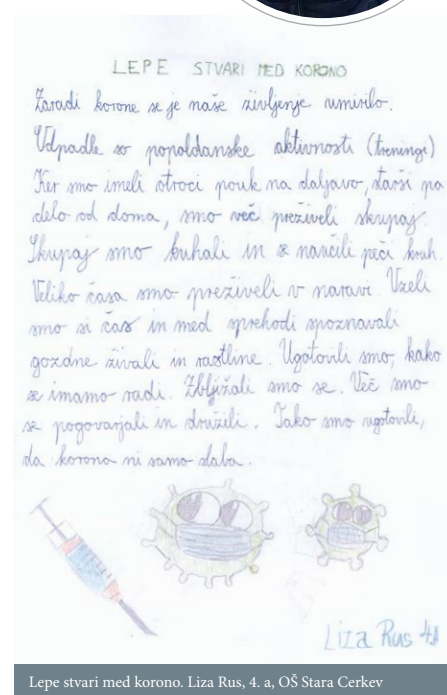 LEPE STVARI MED KORONO
Zaradi korone se je naše življenje umirilo.
Odpadle so popoldanske aktivnosti (treningi)
Ker smo imeli otroci pouk na daljavo, starši pa
delo od doma, smo več preživeli skupaj.
Skupaj smo kuhali in se naučili peči kruh.
Veliko časa smo preživeli v naravi. Vzeli
smo si čas in med sprehodi spoznavali
gozdne živali in rastline. Ugotovili smo, kako
se imamo radi. Zbližali smo se. Več smo
se pogovarjali in družili. Tako smo ugotovili,
da korona ni samo slaba.
Liza Rus 4.A
Lepe stvari med korono. Liza Rus, 4. a, OŠ Stara Cerkev